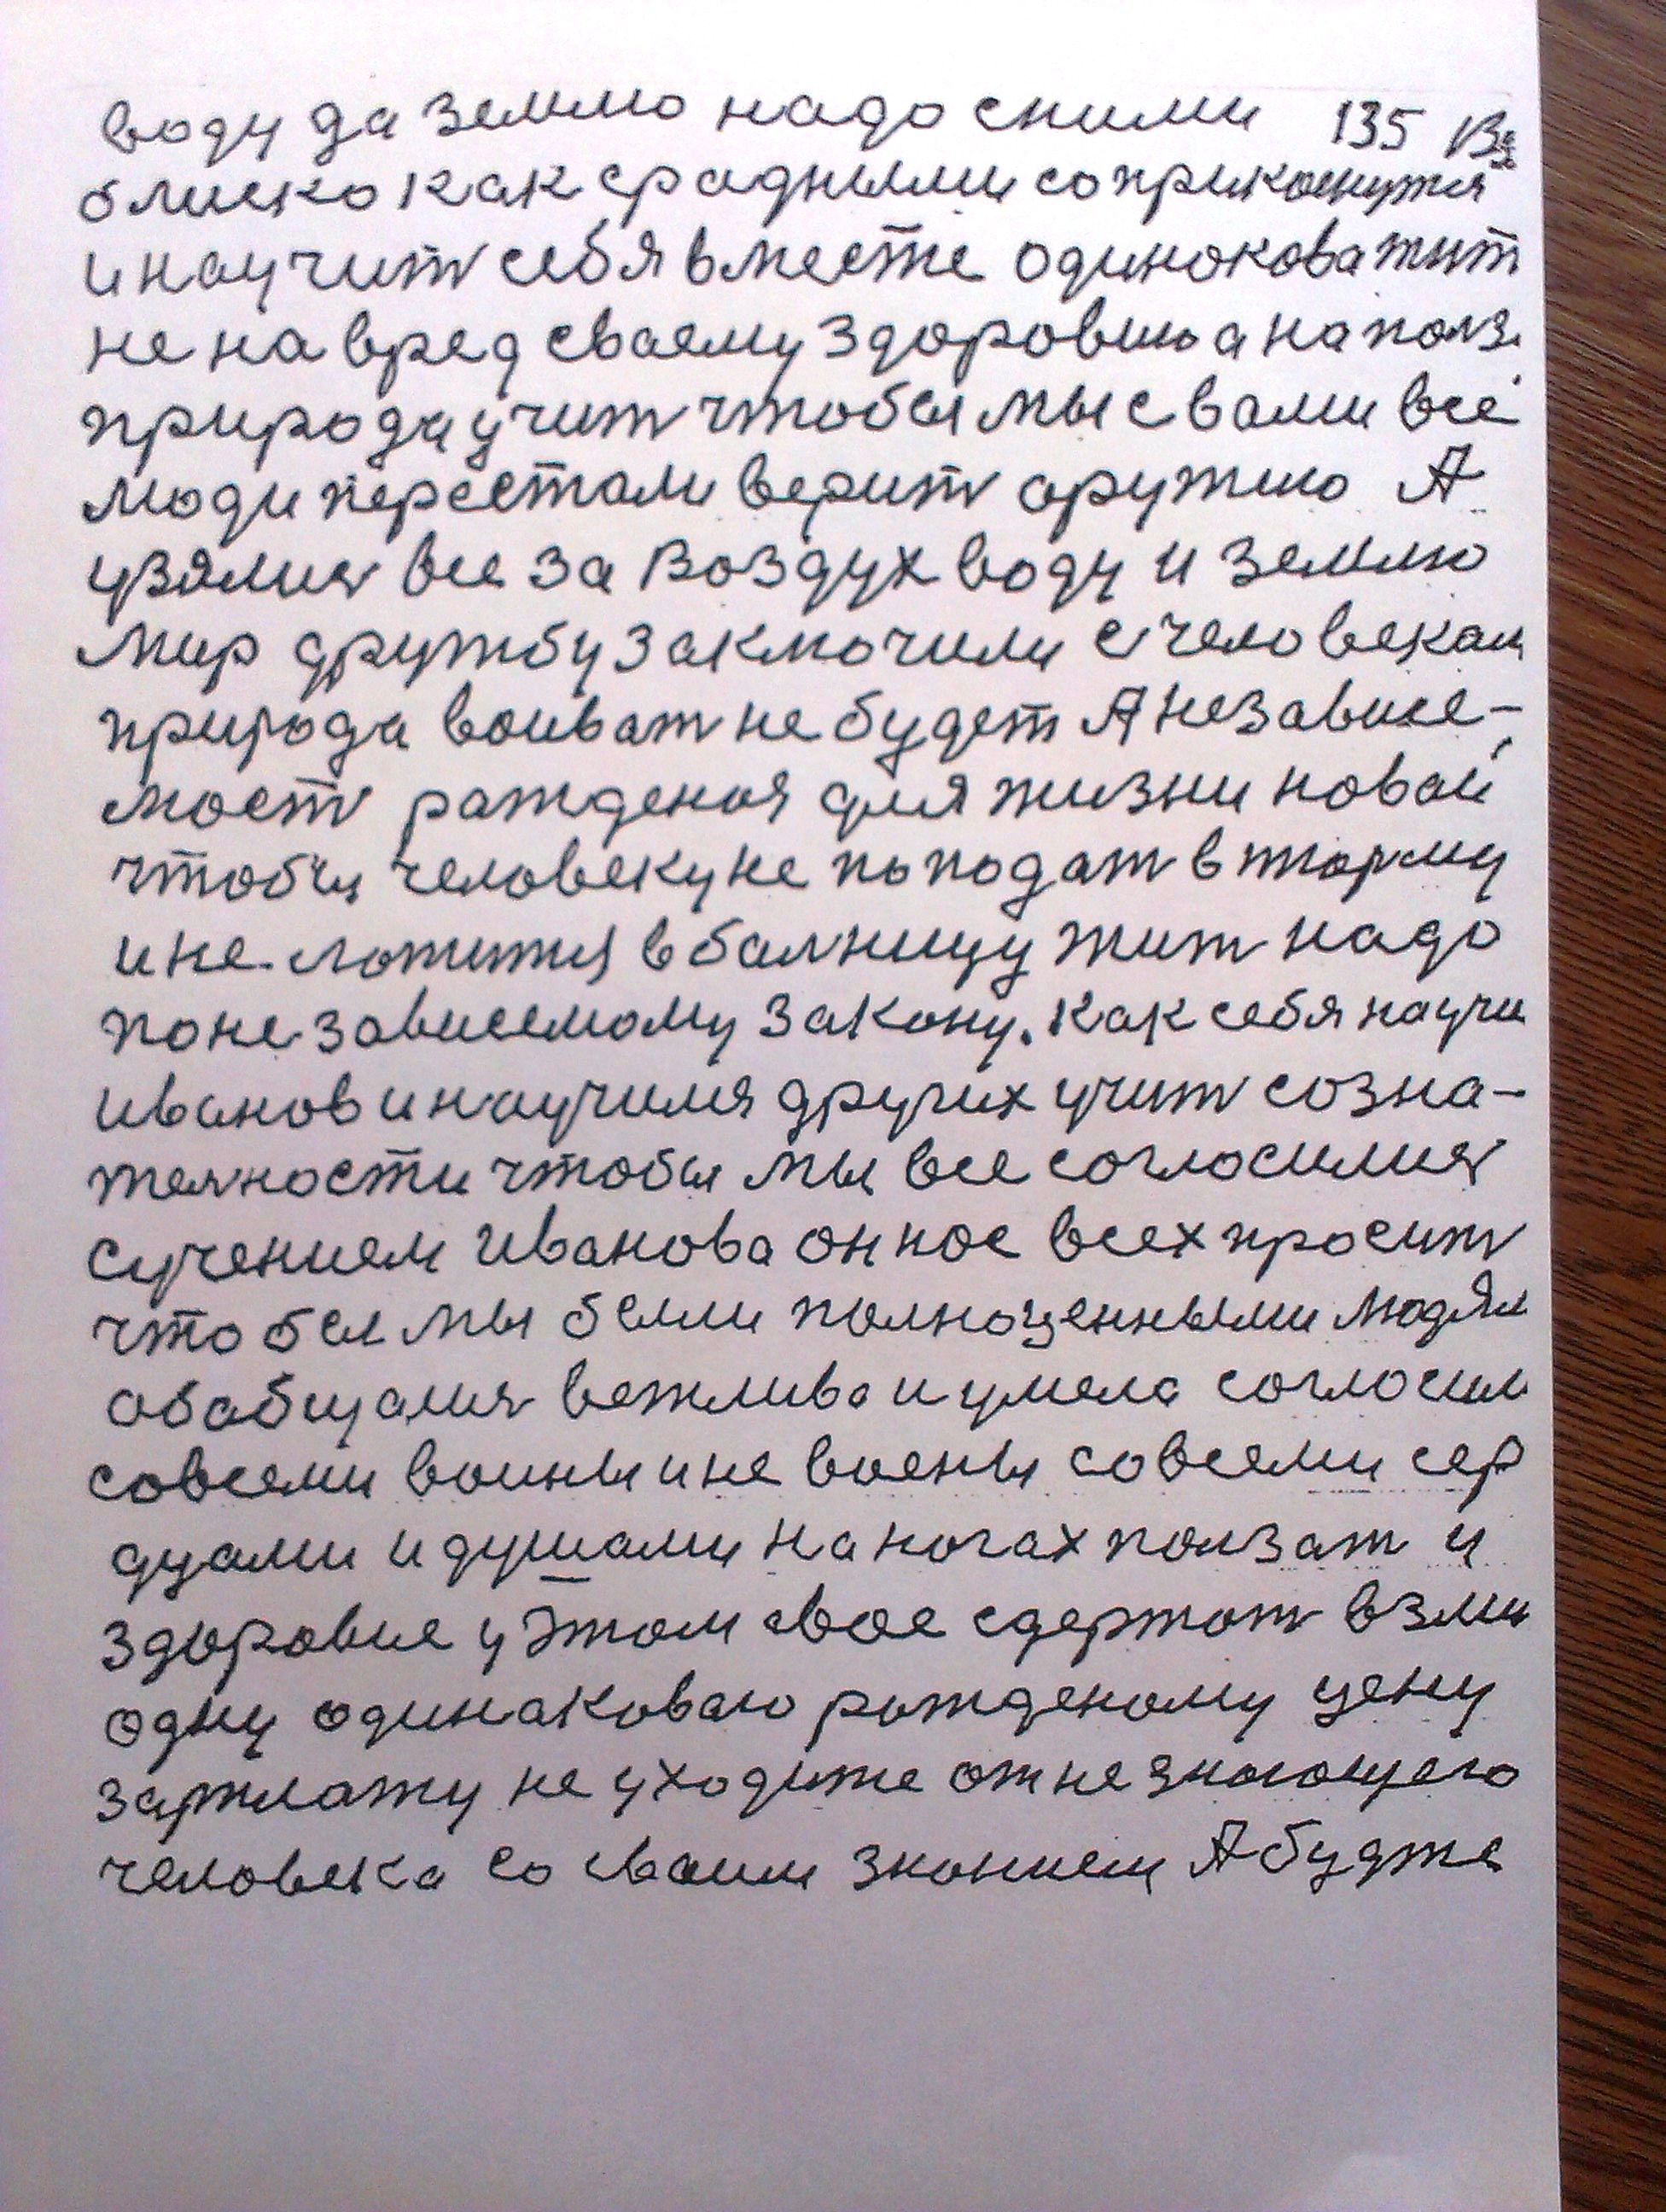 воду да землю надо сними 135
блиско как срадными соприкоснутся
и научит себя вместе одинокова жит
не на вред сваему здоровию а на полз
природа учит чтобы мы с вами все
люди перестали верит оружию А
узялися все за воздух воду и землю
мир дружбу заключили с человекам
природа воиват не будет А независе-
мост рождения для жизни новай
чтобы человеку не поподат в тюрму
и не ложится в балницу жит надо
по не зависемому закону. как себя научи
иванов и научился других учит созна-
телности чтобы мы все согласилися
с учением Иванова он нас всех просит
чтобы мы были полноценными людям
обобщалися вежлива и умела согласил
со всеми воины и не воены со всеми сер
дцами и душами на ногах ползат и
здоровие у этом свое сдержат взми
одну одинаковаю рожденому цену
зарплату не уходите от не знающего
человека со сваим знанием А будте